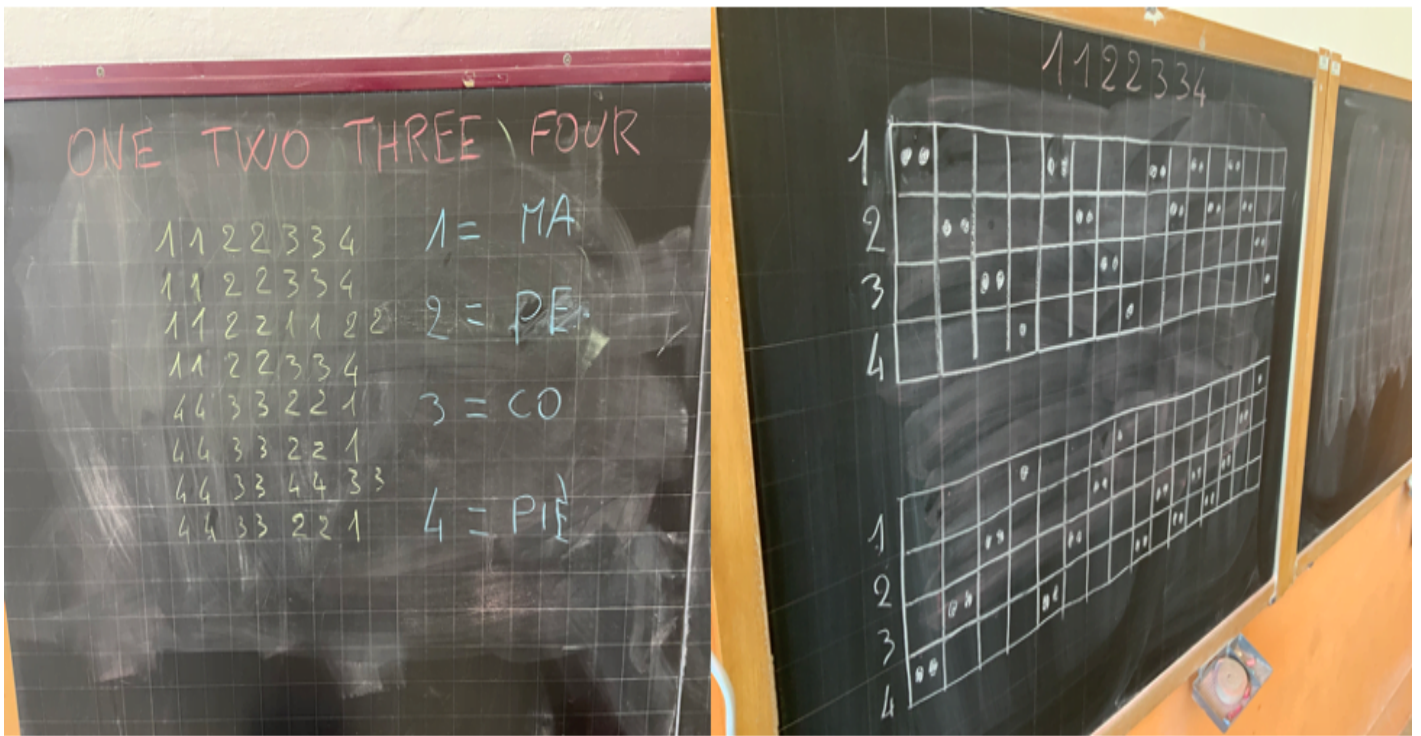 ONE TWO THREE FOUR
1 1 2 2 3 3 4
1 1 2 2 3 3 4
1 1 2 2 1 1 2 2
1 1 2 2 3 3 4
4 4 3 3 2 2 1
4 4 3 3 2 2 1
4 4 3 3 4 4 3 3
4 4 3 3 2 2 1
1 = MA
2 = PE
3 = CO
4 = PIÈ
1 1 2 2 3 3 4
1
2
3
4
1
2
3
4